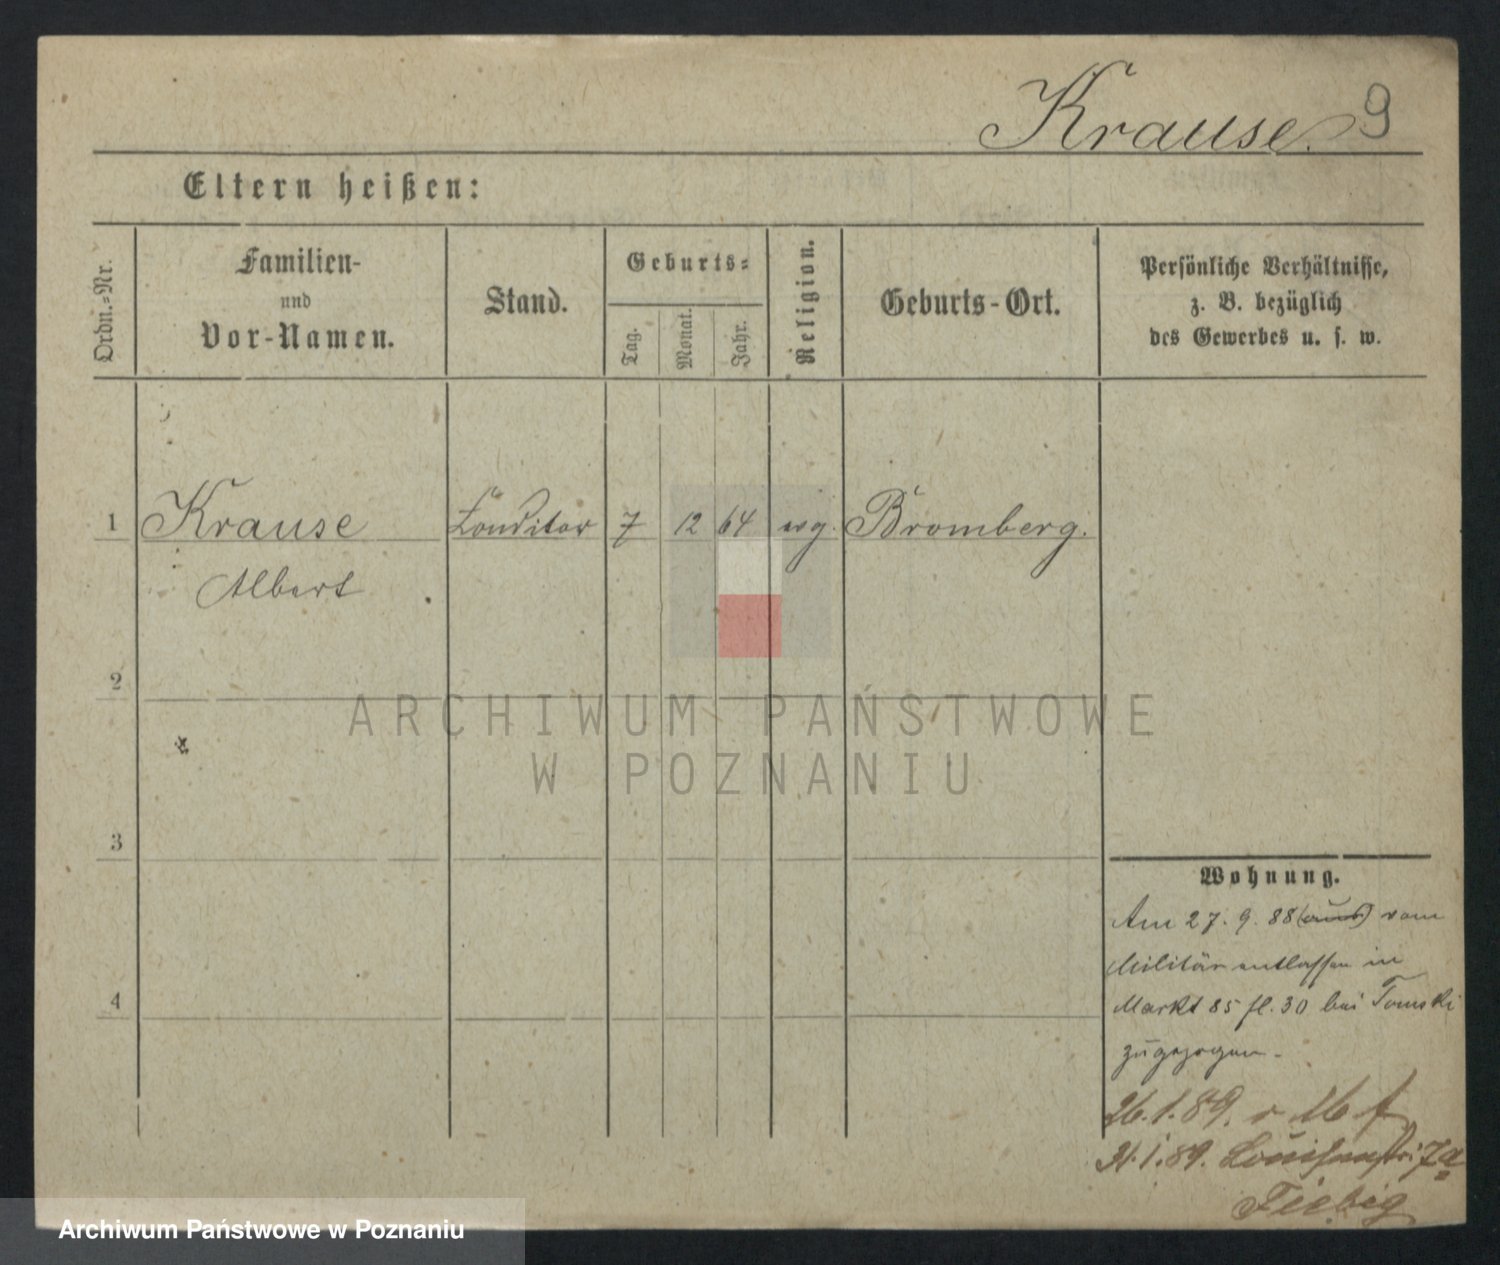 Krause. 9
Eltern heißen:
Ordn.=Nr.
Familien-
und
Vor-Namen.
Stand.
Geburts=
Tag.
Monat.
Jahr.
Religion.
Geburts-Ort.
Persönliche Verhältnisse,
z. B. bezüglich
des Gewerbes u. s. w.
1 Krause Conditor 7 12 64 evg. Bromberg.
Albert
2
ARCHIWUM PAŃSTWOWE
W POZNANIU
3
4
Wohnung.
Am 27. 9. 88 (aus) vom
Militär entlassen in
Markt 85 fl. 30 bei Tomski
zugezogen.
26.1.89.
31.1.89. Louisenstr. 7a
Fiebig
Archiwum Państwowe w Poznaniu